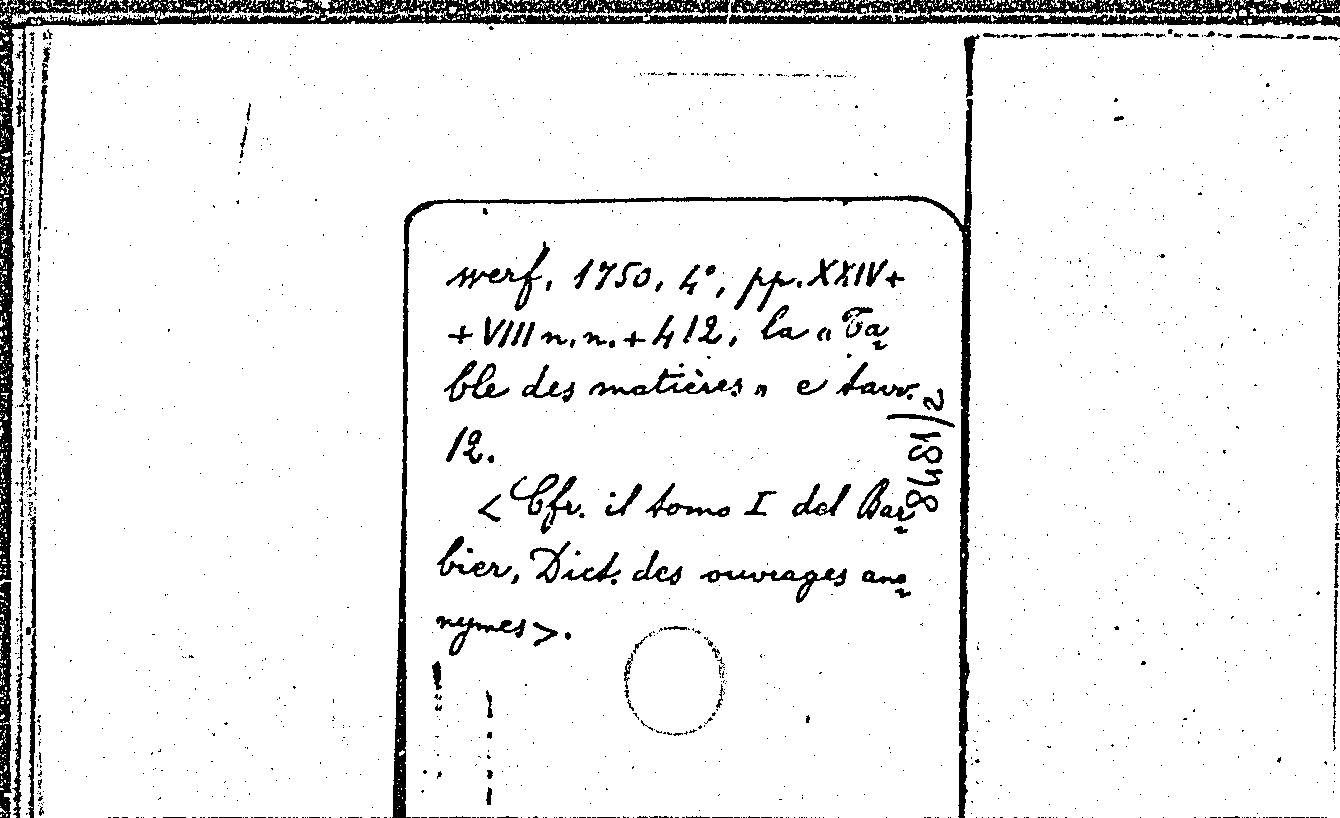 werf, 1750, 4°, pp. XXIV+
+ VIII n. n. + 412, la „Ta-
ble des matières„ e tavv.
12.
<Cfr. il tomo I del Bar-
bier, Dict. des ouvrages ano-
nymes>.
8481/2